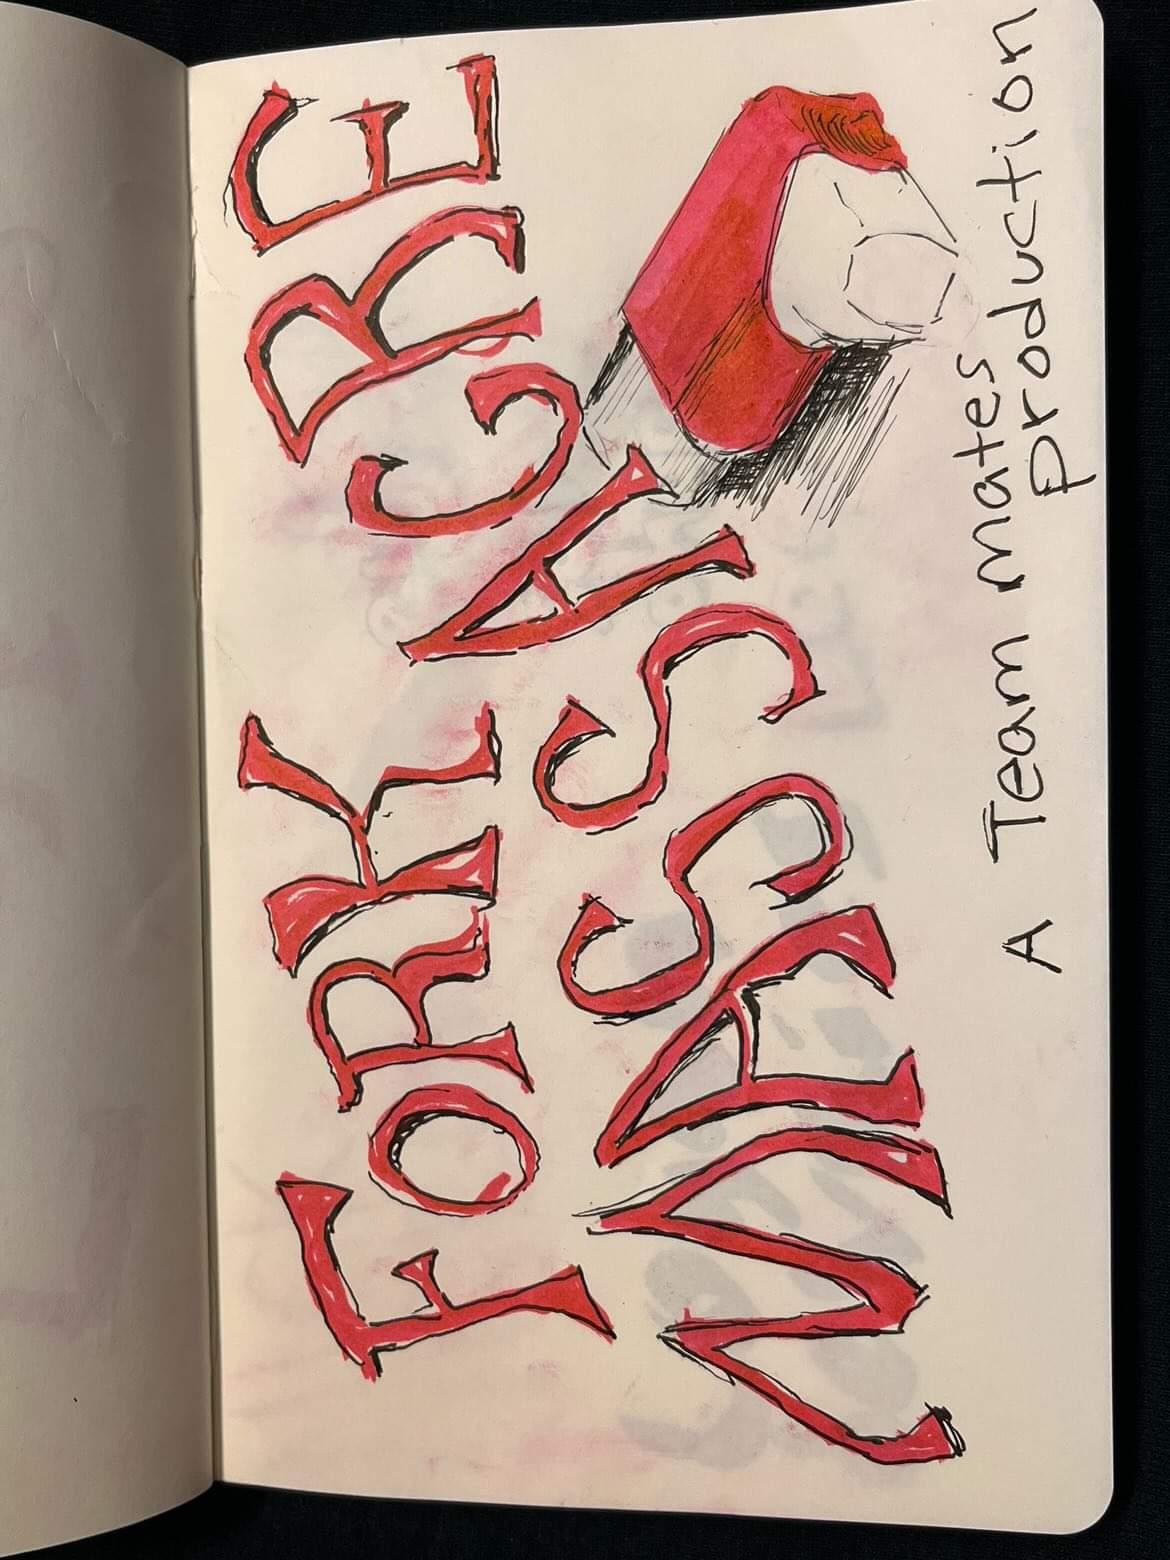 FORK
MASSACRE
A Team mates
production